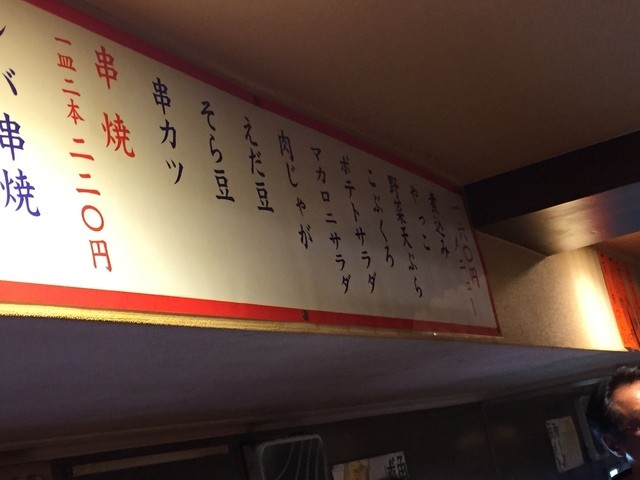 煮込み
やっこ
野菜天ぷら
こぶくろ
ポテトサラダ
マカロニサラダ
肉じゃが
えだ豆
そら豆
串カツ
串焼
一皿二本二二〇円
バ串焼